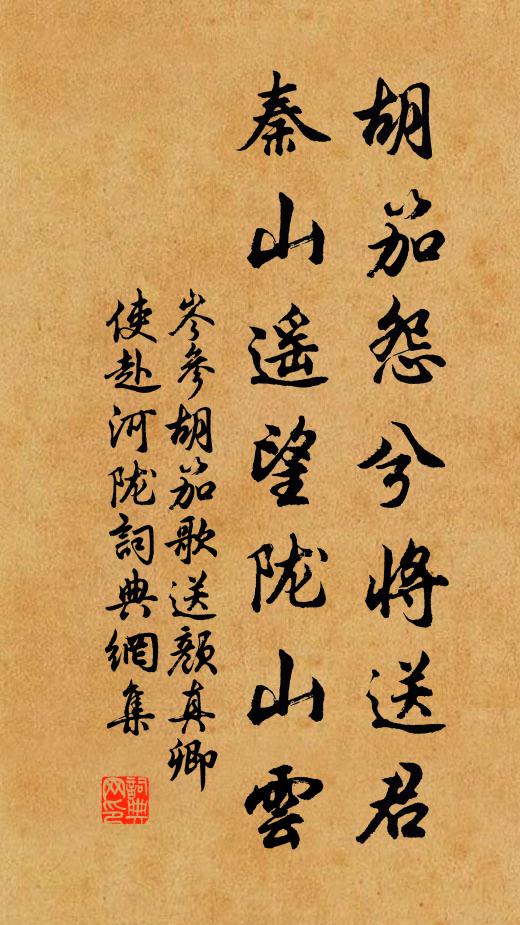 胡笳怨兮将送君
秦山遥望陇山雲
岑参胡笳歌送颜真卿
使赴河陇詞典網集
詞典
网印